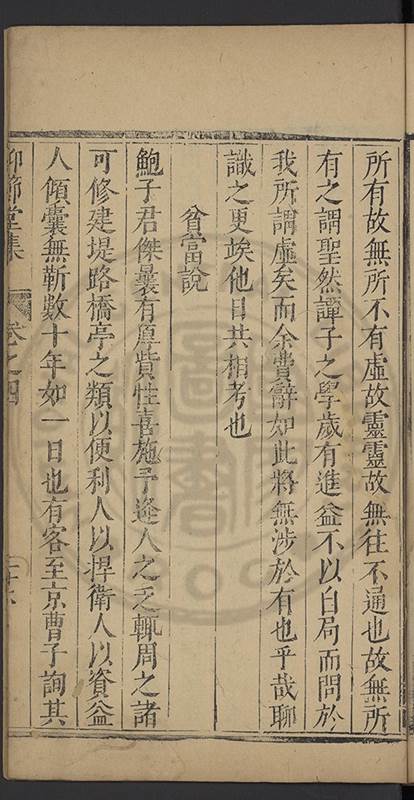 所有故無所不有虛故靈靈故無往不通也故無所
有之謂聖然譚子之學歲有進益不以自局而問於
我所謂虛矣而余費辭如此將無涉於有也乎哉聊
識之更竢他日共相考也
貧富說
鮑子君傑曩有厚貲性喜施予逢人之乏輒周之諸
可修建堤路橋亭之類以便利人以捍衛人以資益
人傾囊無靳數十年如一日也有客至京曹子詢其
仰節堂集 卷之四